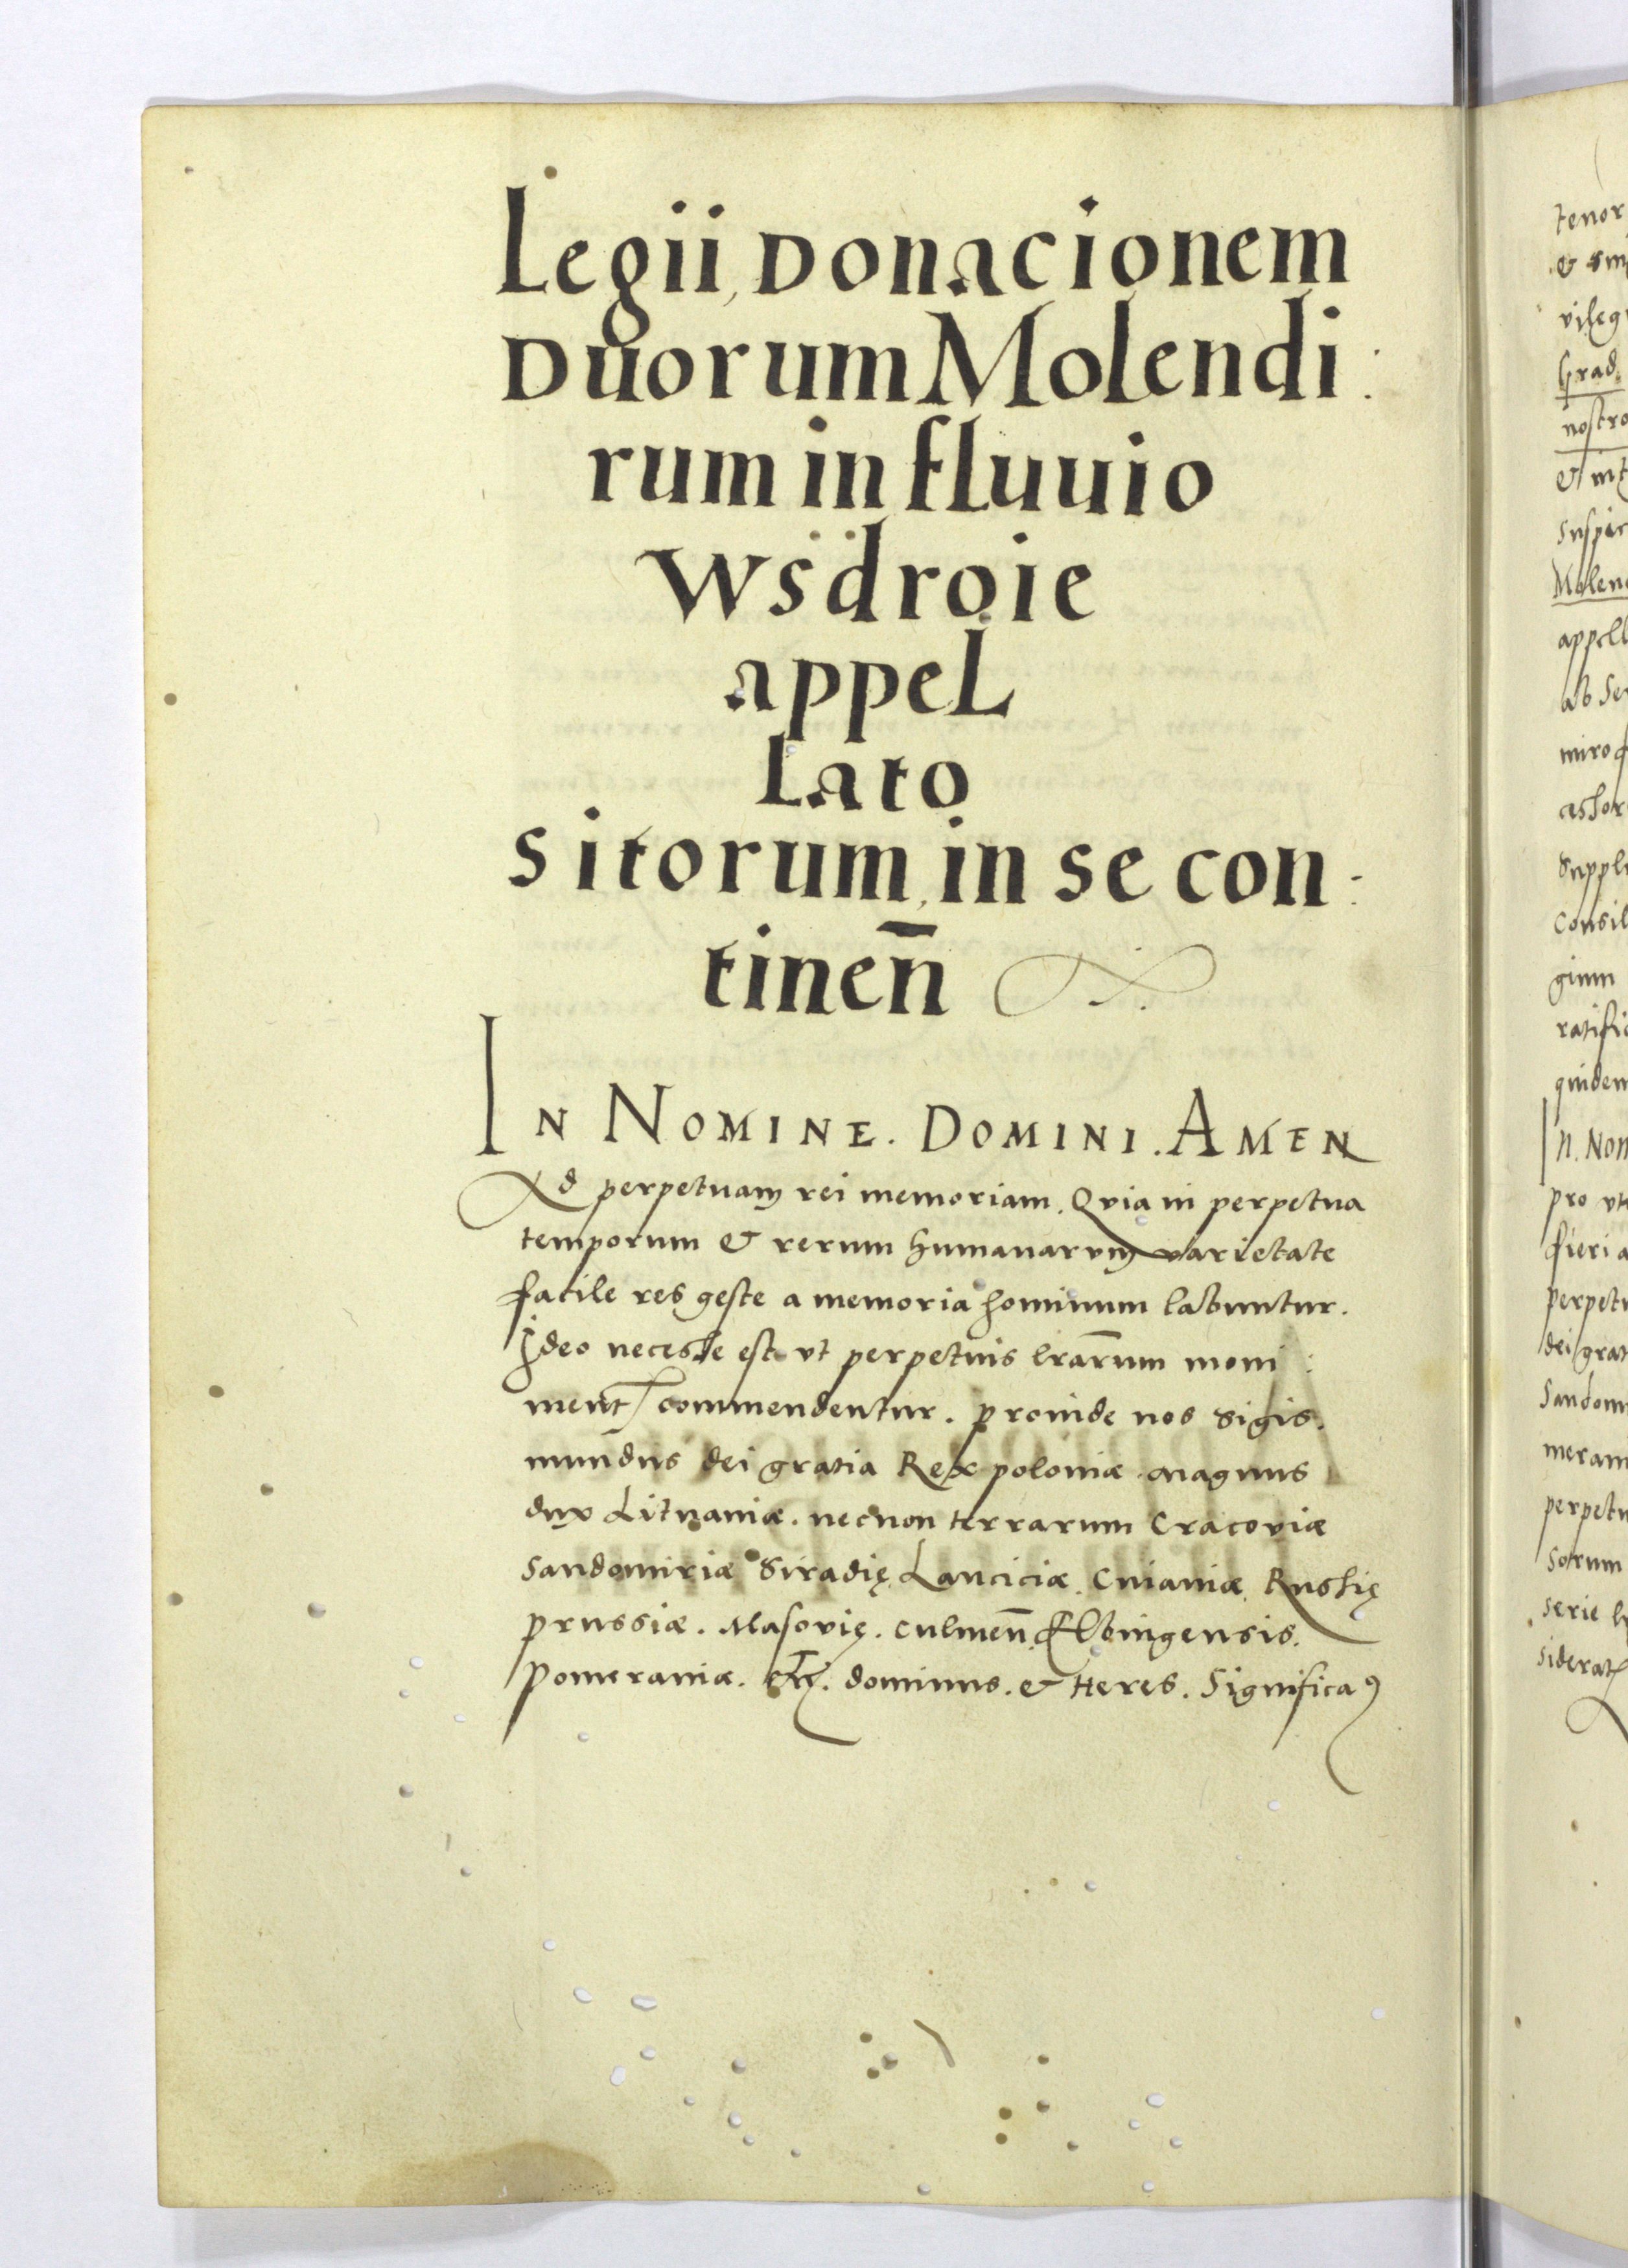 Legii, Donacionem
Duorum Molendi:
rum in fluuio
Wsdroie
appel
lato
sitorum, in se con:
tineñ
In Nomine. Domini. Amen
Ad perpetuam rei memoriam. Quia in perpetua
temporum & rerum humanarum varietate
facile res geste a memoria hominum labuntur.
Ideo necesse est vt perpetuis lrārum moni:
ment commendentur. proinde nos Sigis.
mundus dei gratia Rex poloniæ. magnus
dux Lituaniæ. necnon terrarum Cracoviæ
Sandomiriæ Siradię, Lanciciæ. Cuiaviæ, Russię
prussiæ. Masovię. culmeñ. Elbingensis.
pomeraniæ. etc. dominus. & Heres. Significaꝯ
tenor
& sm
vileg
Grad.
nostro
& int
suspic
Molen
appell
ab Se
miro
assor
Suppli
Consil
gium
ratific
quidem
In. Nom
pro vt
fieri a
perpetu
dei grat
Sandom
meran
perpetu
sorum
serie l
siderat